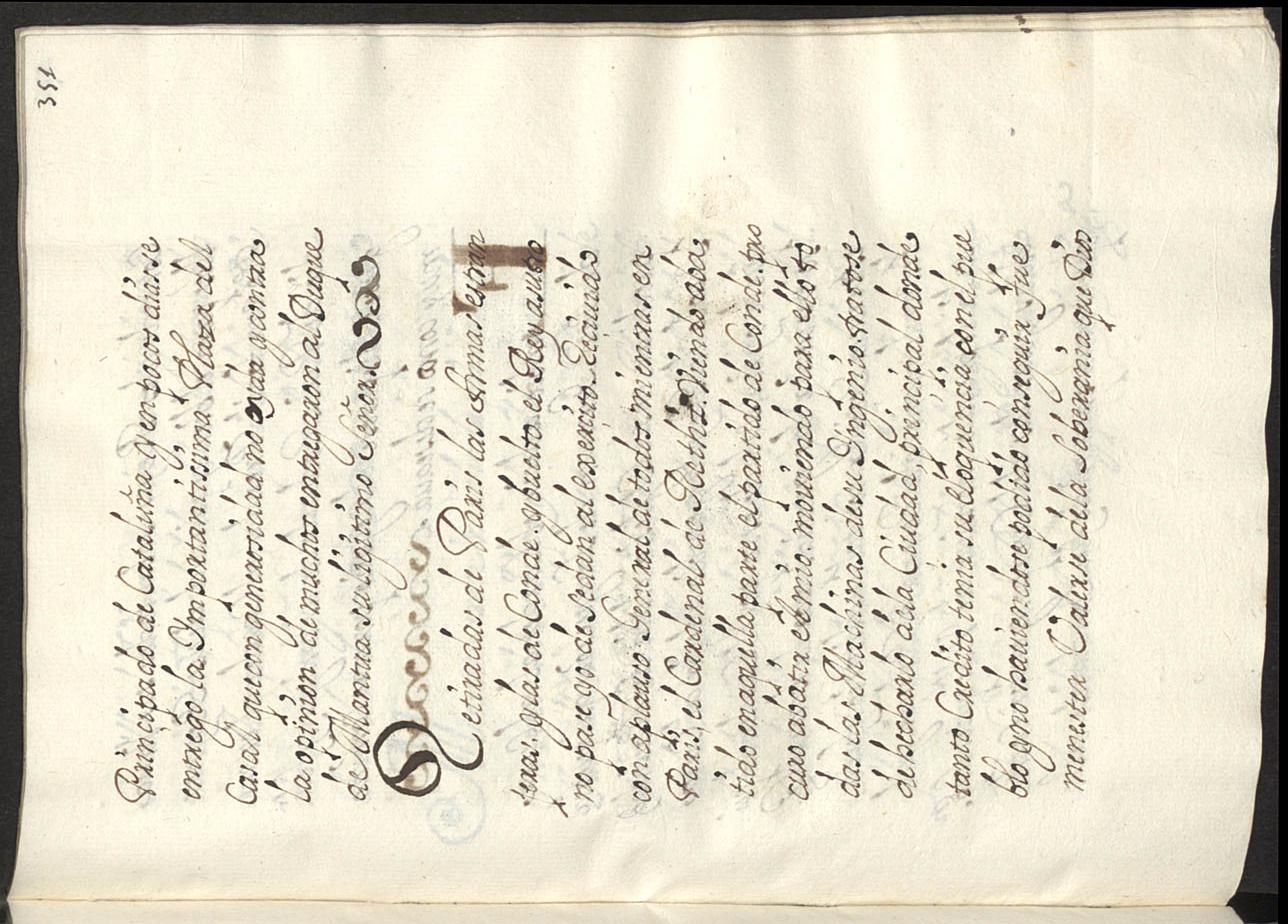 351
Principado de Cataluña y en pocos dias se
entrego la Importantissima Plaza del
Casal: que con generosidad no y contra
la opinion de muchos entregaron al Duque
de Mantua su ligitimo Señor.
Retiradas de Paris las Armas estran
jeras, y las de Conde, y buelto el Rey a su tro
no pase yo de Sedan al exercito. Seguido
con aplauso General de todos mientras en
Paris, el Cardenal de Rethz. Viendo aba
tido en aquella parte el partido de Conde. pro
curo abatir el mio. moviendo para ello to
das las Machinas de su Ingenio. tratose
de hecharlo de la Ciudad, principal donde
tanto Credito tenia su eloquencia con el pue
blo y no haviendose podido conseguir, fue
menester Valerse de la Soberania que Dio